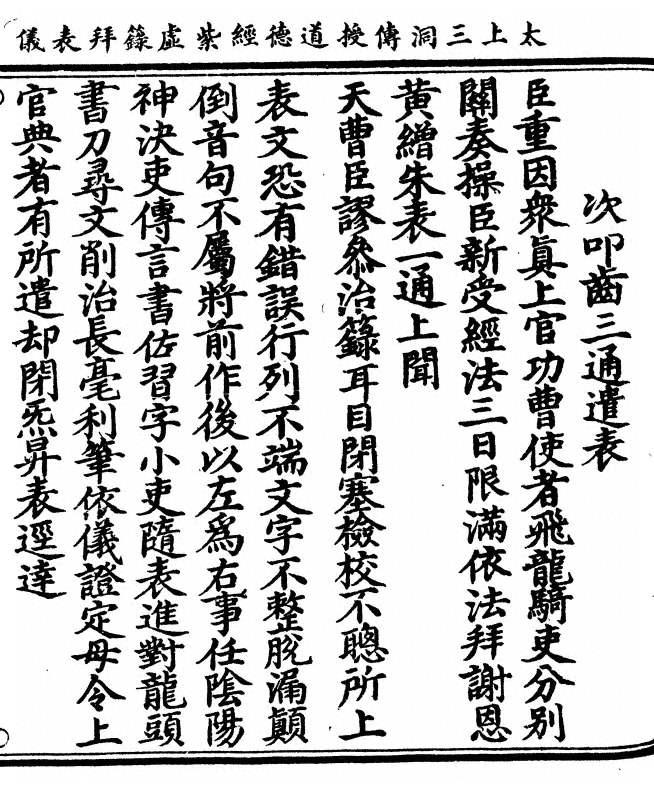 太上三洞傳授道德經紫虛籙拜表儀
次叩齒三通遣表
臣重因衆眞上官功曹使者飛龍騎吏分別
關奏操臣新受經法三日限滿依法拜謝恩
黃繒朱表一通上聞
天曹臣謬叅治籙耳目閉塞檢校不聰所上
表文恐有錯誤行列不端文字不整脫漏顚
倒音句不屬將前作後以左爲右事任陰陽
神決吏傳言書佐習字小吏隨表進對龍頭
書刀尋文削治長毫利筆依儀證定毋令上
官典者有所遣却閉炁昇表逕達